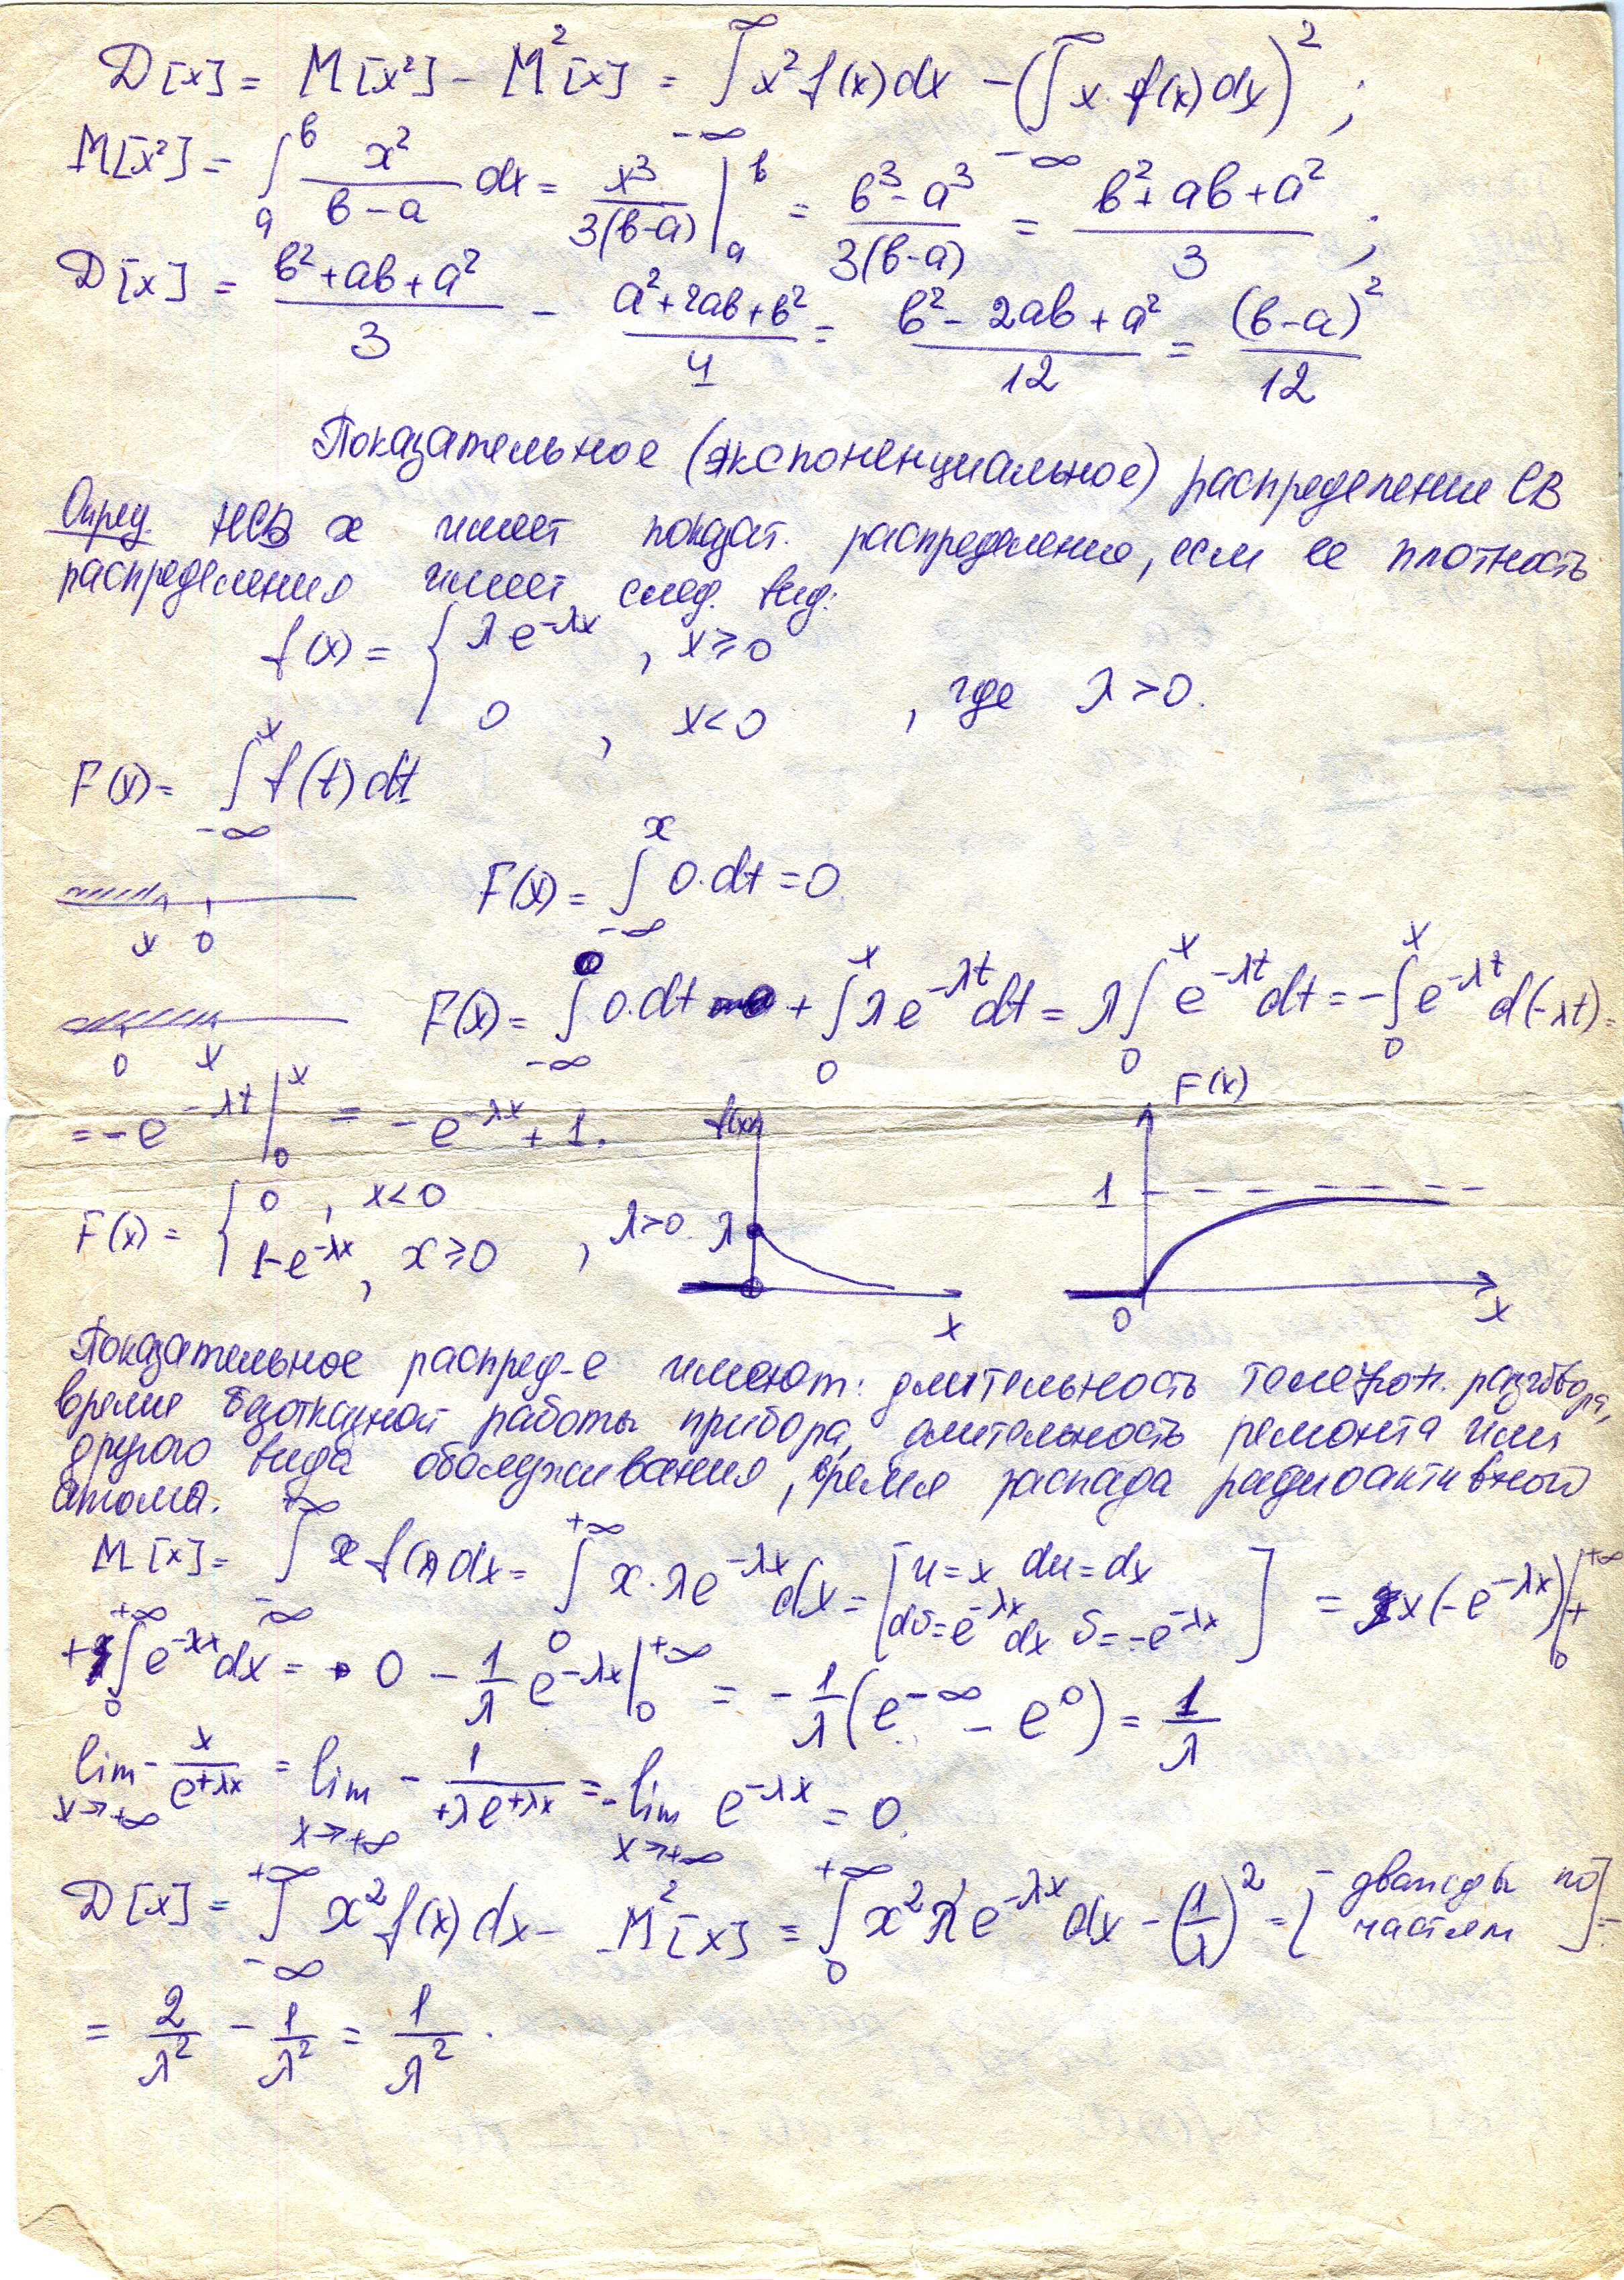 D[x] = M[x²] - M²[x] = ∫_{-∞}^{∞} x² f(x) dx - (∫_{-∞}^{∞} x·f(x) dx)² ;
M[x²] = ∫_a^b x²/(b-a) dx = x³/(3(b-a)) |_a^b = (b³-a³)/(3(b-a)) = (b²+ab+a²)/3 ;
D[x] = (b²+ab+a²)/3 - (a²+2ab+b²)/4 = (b²-2ab+a²)/12 = (b-a)²/12
Показательное (экспоненциальное) распределение СВ
Опред. НСВ x имеет показат. распределение, если ее плотность
распределения имеет след. вид:
f(x) = { λe^{-λx} , x≥0
0 , x<0 , где λ>0.
F(x) = ∫_{-∞}^{x} f(t) dt
x 0 F(x) = ∫_{-∞}^{x} 0·dt = 0
0 x F(x) = ∫_{-∞}^{0} 0·dt + ∫_0^x λe^{-λt} dt = λ∫_0^x e^{-λt} dt = -∫_0^x e^{-λt} d(-λt) =
= -e^{-λt} |_0^x = -e^{-λx} + 1.
F(x) = { 0 , x<0
1-e^{-λx} , x≥0 , λ>0.
f(x) λ x
F(x) 1 0 x
Показательное распред-е имеют: длительность телефон. разговора,
время безотказной работы прибора, длительность ремонта или
другого вида обслуживания, время распада радиоактивного
атома.
M[x] = ∫_{-∞}^{+∞} x f(x) dx = ∫_0^{+∞} x·λe^{-λx} dx = [u=x du=dx dv=e^{-λx}dx v=-e^{-λx}] = x(-e^{-λx}) |_0^{+∞} +
+ ∫_0^{+∞} e^{-λx} dx = 0 - 1/λ e^{-λx} |_0^{+∞} = -1/λ (e^{-∞} - e^0) = 1/λ
lim_{x→+∞} - x/e^{+λx} = lim_{x→+∞} - 1/(+λe^{+λx}) = -lim_{x→+∞} e^{-λx} = 0.
D[x] = ∫_{-∞}^{+∞} x² f(x) dx - M²[x] = ∫_0^{+∞} x² λe^{-λx} dx - (1/λ)² = [дважды по частям] =
= 2/λ² - 1/λ² = 1/λ² .